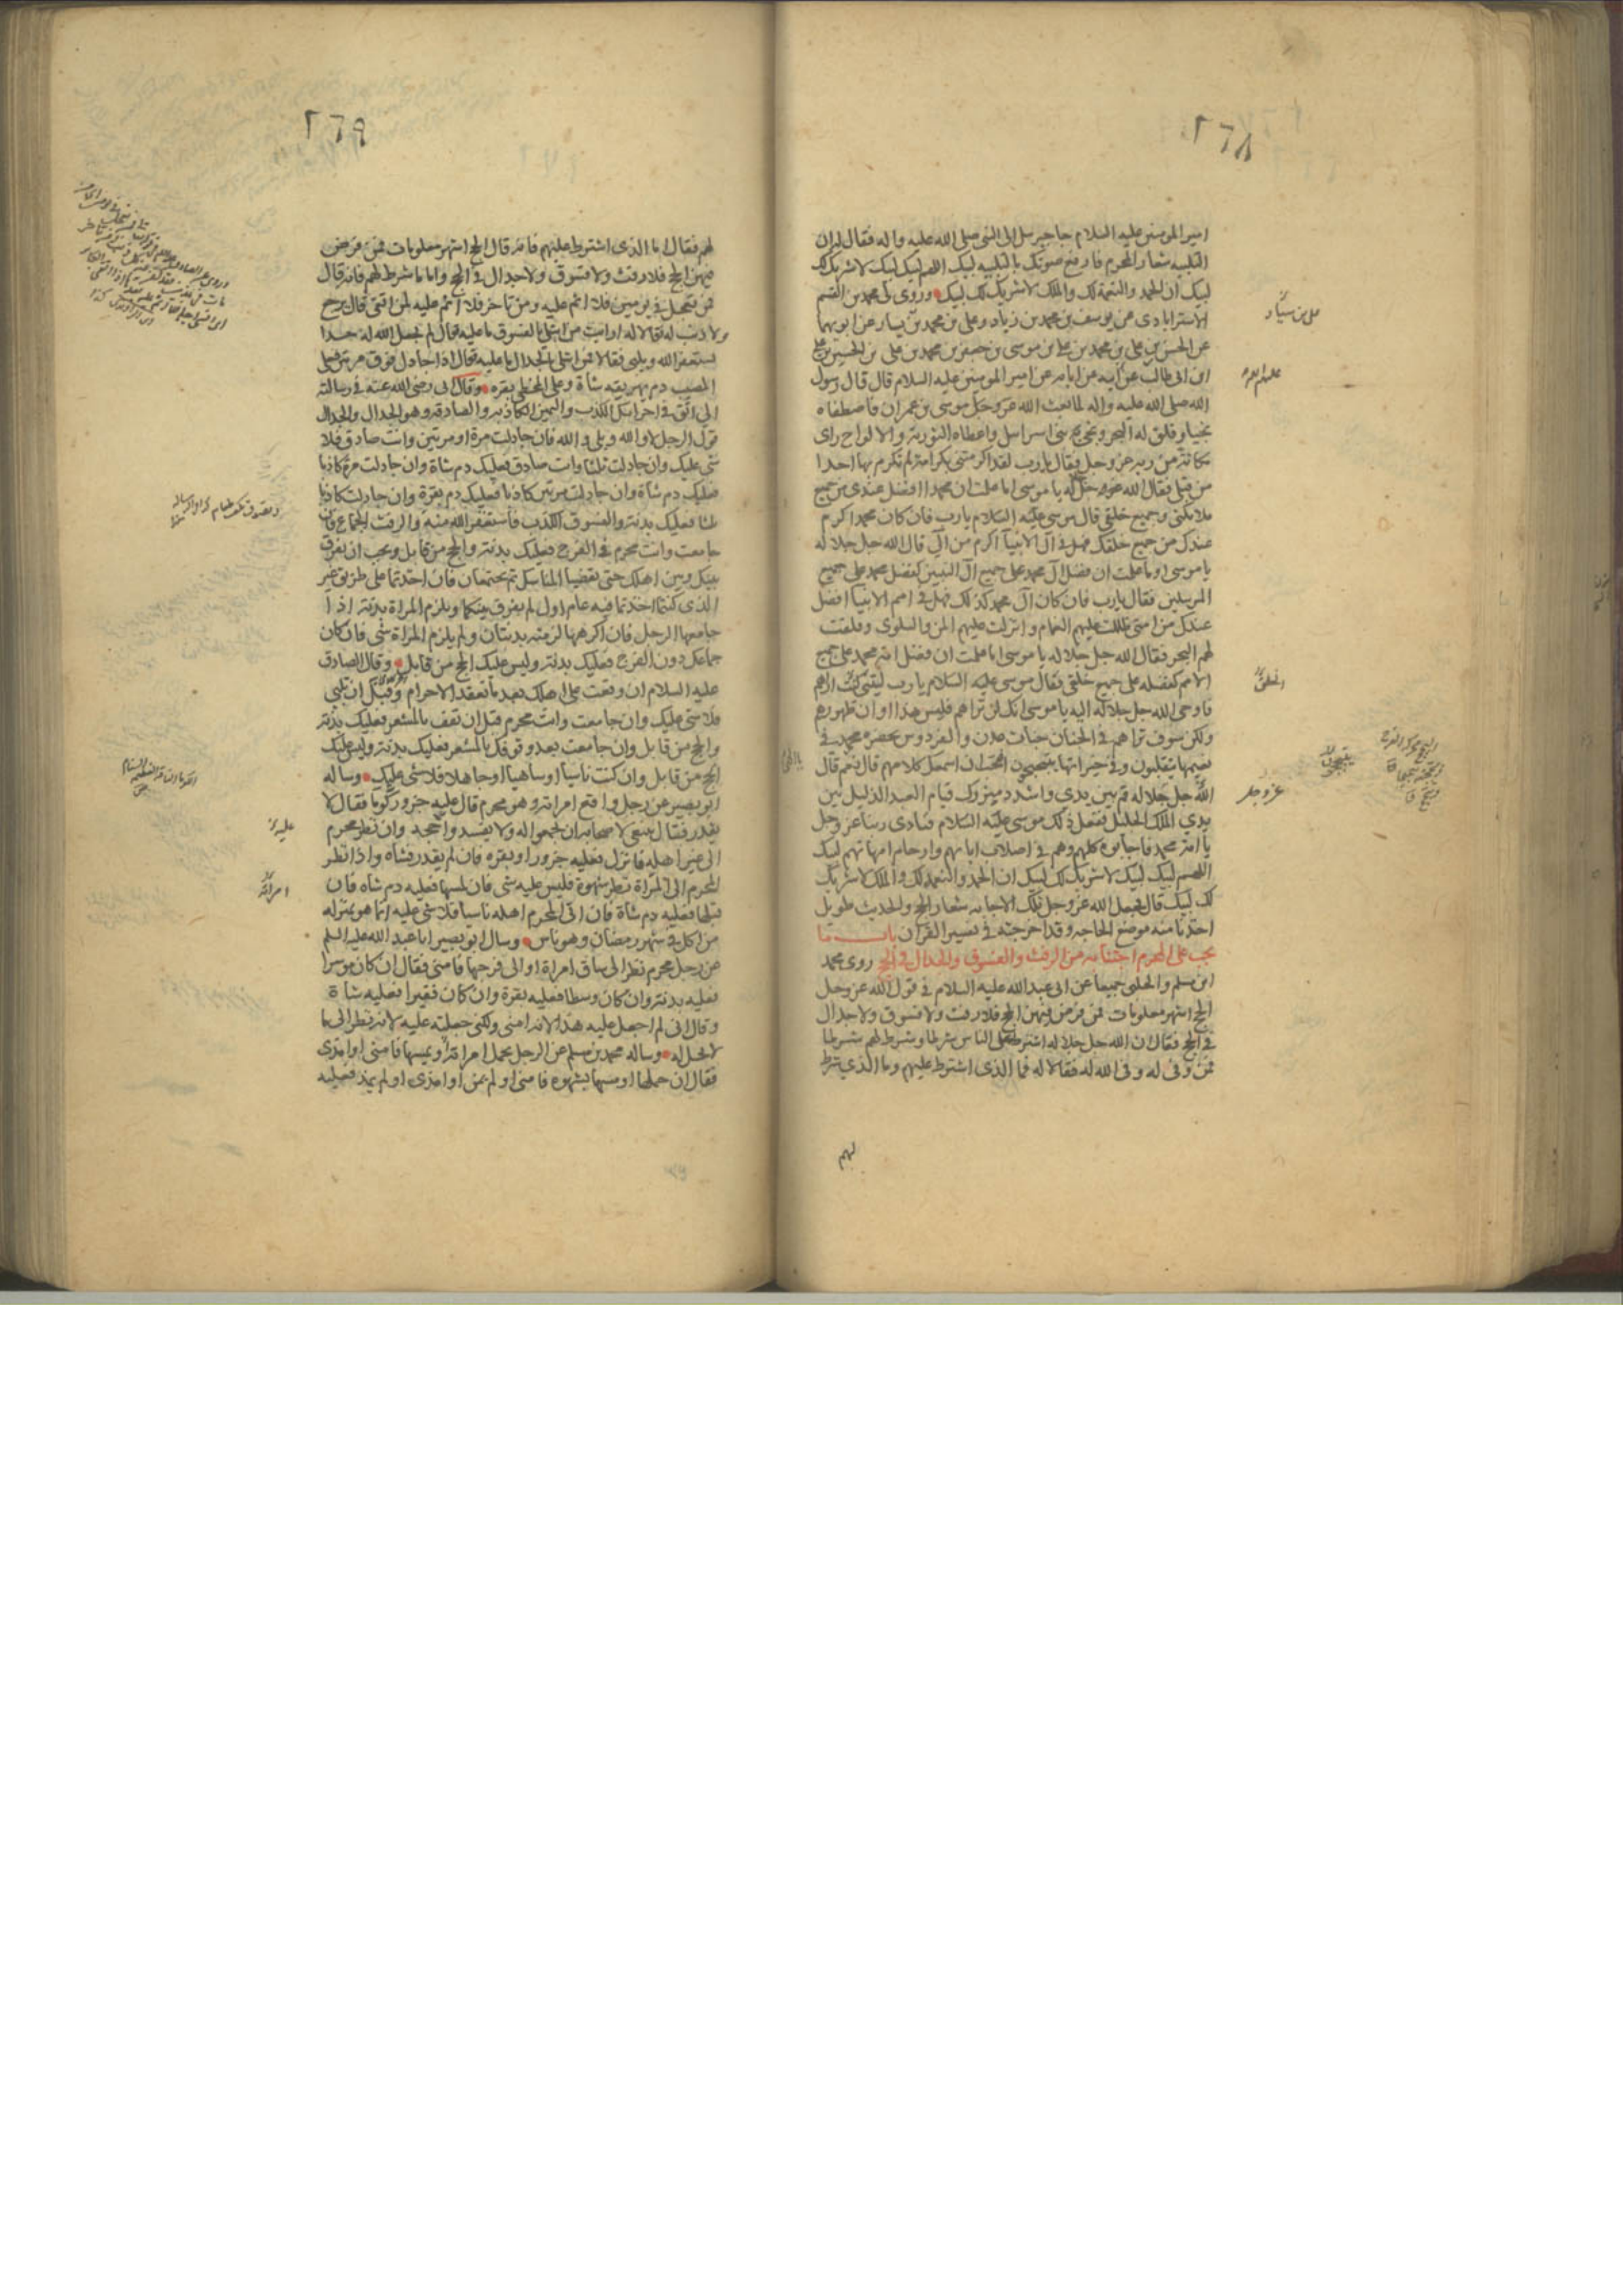 ٢٦٨
امير المومنين عليه السلام جا جبرئيل الى النبي صلى الله عليه واله فقال له ان
التلبيه شعار المحرم فارفع صوتك بالتلبيه لبيك اللهم لبيك لبيك لا شريك لك
لبيك ان الحمد والنعمة لك والملك لا شريك لك لبيك وروى لى محمد بن القسم
الاسترابادى عن يوسف بن محمد بن زياد وعلى بن محمد بن يسار عن ابويهما
عن الحسن بن على بن محمد بن على بن موسى بن جعفر بن محمد بن على بن الحسين بن على
ابن ابى طالب عن ابيه عن ابائه عن امير المومنين عليه السلام قال قال رسول
الله صلى الله عليه واله لما بعث الله عز وجل موسى بن عمران فاصطفاه
نجيا وفلق له البحر ونجى بنى اسرائيل واعطاه التورية والالواح راى
مكانه من ربه عز وجل فقال يا رب لقد اكرمتنى بكرامة لم تكرم بها احدا
من قبلى فقال الله عز وجل له يا موسى اما علمت ان محمدا افضل عندى من جميع
ملائكتى وجميع خلقى قال موسى عليه السلام يا رب فان كان محمد اكرم
عندك من جميع خلقك فهل فى آل الانبيآ اكرم من آلى قال الله جل جلاله
يا موسى اوما علمت ان فضل آل محمد على جميع آل النبيين كفضل محمد على جميع
المرسلين فقال يا رب فان كان آل محمد كذلك فهل فى امم الانبيآ افضل
عندك من امتى ظللت عليهم الغمام وانزلت عليهم المن والسلوى وفلقت
لهم البحر فقال الله جل جلاله يا موسى اما علمت ان فضل امة محمد على جميع
الامم كفضله على جميع خلقى فقال موسى عليه السلام يا رب ليتنى كنت اراهم
فاوحى الله جل جلاله اليه يا موسى انك لن تراهم فليس هذا اوان ظهورهم
ولكن سوف تراهم فى الجنان جنات عدن والفردوس بحضرة محمد فى
نعيمها يتقلبون وفى خيراتها يتبحبحون افتحب ان اسمعك كلامهم قال نعم قال
الله جل جلاله قم بين يدي واشدد ميزرك قيام العبد الذليل بين
يدي الملك الجليل ففعل ذلك موسى عليه السلام فنادى ربنا عز وجل
يا امة محمد فاجابوه كلهم وهم فى اصلاب ابائهم وارحام امهاتهم لبيك
اللهم لبيك لبيك لا شريك لك لبيك ان الحمد والنعمة لك والملك لا شريك
لك لبيك قال فجعل الله عز وجل تلك الاجابه شعار الحج والحديث طويل
اخذنا منه موضع الحاجه وقد اخرجته فى تفسير القرآن باب ما
يجب على المحرم اجتنابه من الرفث والفسوق والجدال فى الحج روى محمد
ابن مسلم والحلبى جميعا عن ابى عبد الله عليه السلام فى قول الله عز وجل
الحج اشهر معلومات فمن فرض فيهن الحج فلا رفث ولا فسوق ولا جدال
فى الحج فقال ان الله جل جلاله اشترط على الناس شرطا وشرط لهم شرطا
فمن وفى له وفى الله له فقالا له فما الذى اشترط عليهم وما الذى شرط
لهم
عز وجل
٢٦٩
لهم فقال اما الذى اشترط عليهم فانه قال الحج اشهر معلومات فمن فرض
فيهن الحج فلا رفث ولا فسوق ولا جدال فى الحج واما ما شرط لهم فانه قال
فمن تعجل فى يومين فلا اثم عليه ومن تاخر فلا اثم عليه لمن اتقى قال يرجع
ولا ذنب له فقالا له ارايت من ابتلى بالفسوق ما عليه قال لم يجعل الله له حدا
يستغفر الله ويلبى فقالا فمن ابتلى بالجدال ما عليه فقال اذا جادل فوق مرتين فعلى
المصيب دم يهريقه شاة وعلى المخطى بقره وقال ابى رضى الله عنه فى رسالته
الى اتق فى احرامك الكذب واليمين الكاذبه والصادقه وهو الجدال والجدال
قول الرجل لا والله وبلى والله فان جادلت مرة او مرتين وانت صادق فلا
شى عليك وان جادلت ثلثا وانت صادق فعليك دم شاة وان جادلت مرة كاذبا
فعليك دم شاة وان جادلت مرتين كاذبا فعليك دم بقرة وان جادلت كاذبا
ثلثا فعليك بدنة والفسوق الكذب فاستغفر الله منه والرفث الجماع فان
جامعت وانت محرم فى الفرج فعليك بدنة والحج من قابل ويجب ان يفرق
بينك وبين اهلك حتى تقضيا المناسك ثم تجتمعان فان اخذتما على طريق غير
الذى كنتما اخذتما فيه عام اول لم يفرق بينكما ويلزم المراة بدنة اذا
جامعها الرجل فان اكرهها لزمته بدنتان ولم يلزم المراة شى فان كان
جماعك دون الفرج فعليك بدنة وليس عليك الحج من قابل وقال الصادق
عليه السلام ان وقعت على اهلك بعد ما تعقد الاحرام وقبل ان تلبى
فلا شى عليك وان جامعت وانت محرم قبل ان تقف بالمشعر فعليك بدنة
والحج من قابل وان جامعت بعد وقوفك بالمشعر فعليك بدنة وليس عليك
الحج من قابل وان كنت ناسيا او ساهيا او جاهلا فلا شى عليك وساله
ابو بصير عن رجل واقع امراته وهو محرم قال عليه جزور كوما فقال لا
يقدر فقال ينبغى لاصحابه ان يجمعوا له ولا يفسدوا حجه وان نظر محرم
الى غير اهله فانزل فعليه جزور او بقره فان لم يقدر فشاه واذا نظر
المحرم الى المراة نظر شهوة فليس عليه شى فان لمسها فعليه دم شاه فان
قبلها فعليه دم شاة فان اتى المحرم اهله ناسيا فلا شى عليه انما هو بمنزله
من اكل فى شهر رمضان وهو ناس وسال ابو بصير ابا عبد الله عليه السلم
عن رجل محرم نظر الى ساق امراة او الى فرجها فامنى فقال ان كان موسرا
فعليه بدنة وان كان وسطا فعليه بقرة وان كان فقيرا فعليه شاة
وقال انى لم اجعل عليه هذا لانه امنى ولكنى جعلته عليه لانه نظر الى ما
لا يحل له وساله محمد بن مسلم عن الرجل يحمل امراته او يمسها فامنى او امذى
فقال ان حملها او مسها بشهوه فامنى او لم يمن او امذى او لم يمذ فعليه